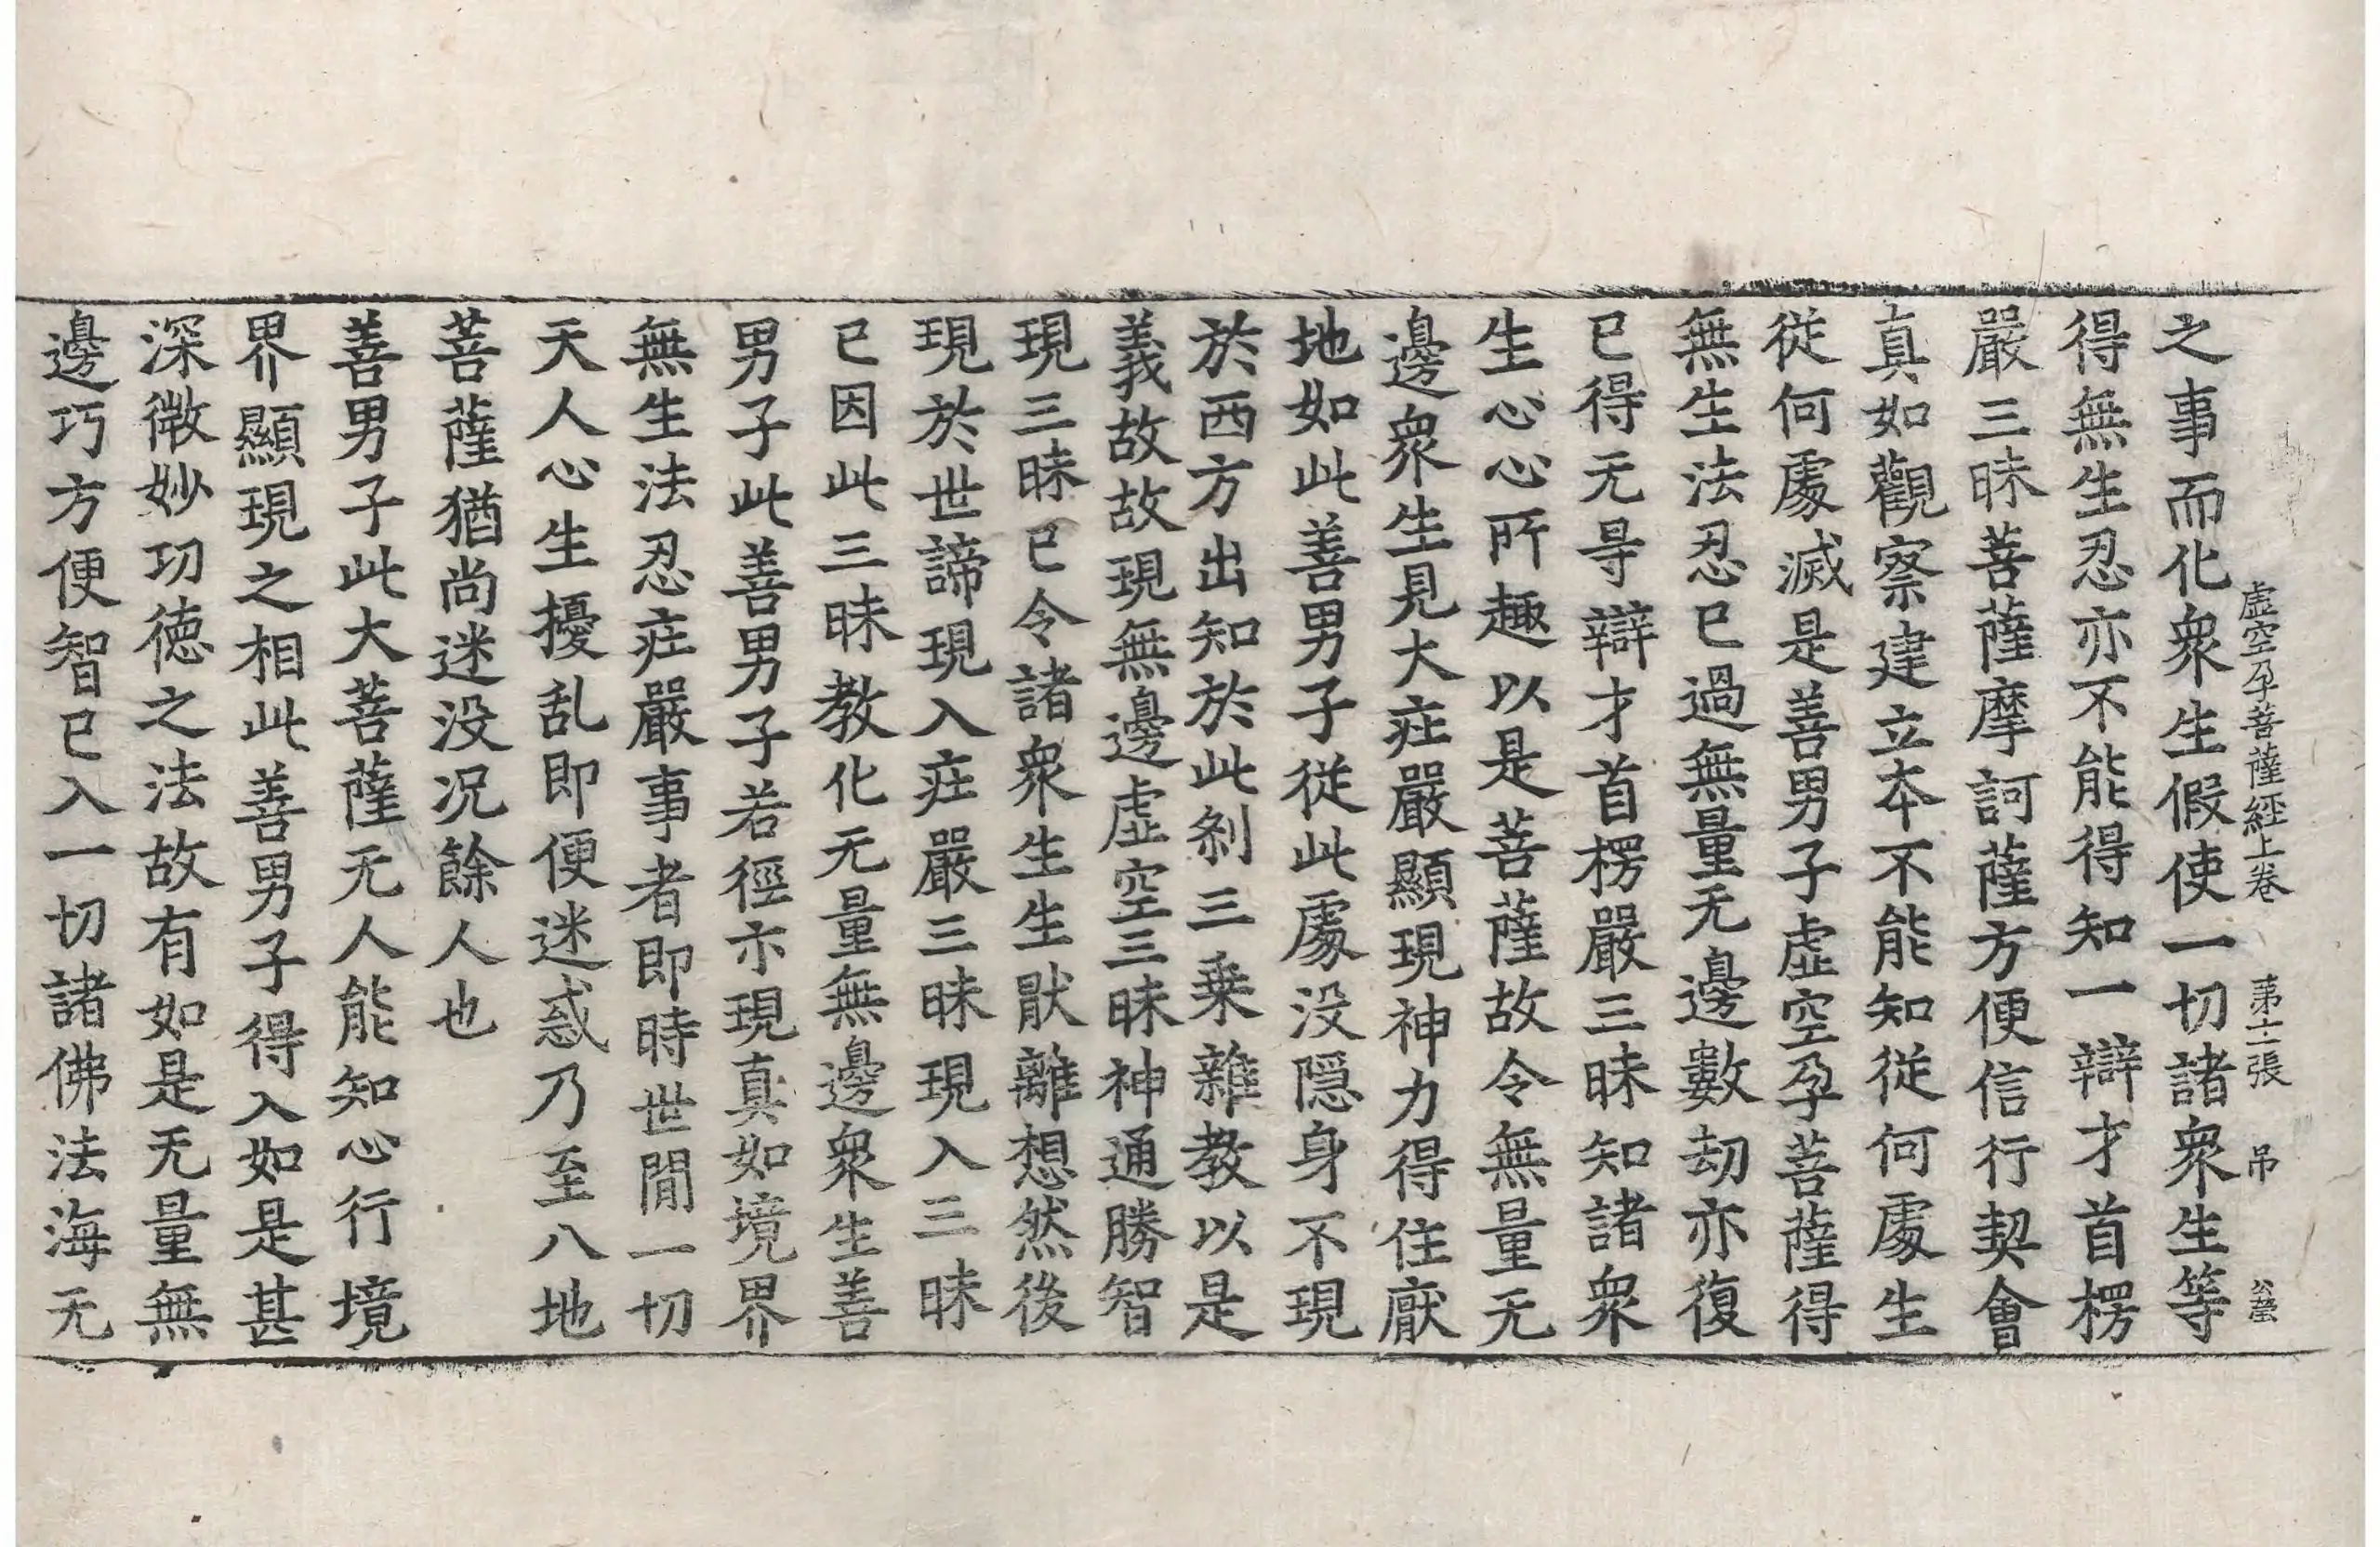 虚空孕菩薩經上卷 苐十二張 吊 公瑩
之事而化衆生假使一切諸衆生等
得無生忍亦不能得知一辯才首楞
嚴三昧菩薩摩訶薩方便信行契會
真如觀察建立本不能知従何處生
従何處滅是善男子虚空孕菩薩得
無生法忍已過無量无邊數劫亦復
已得无㝵辯才首楞嚴三昧知諸衆
生心心所趣以是菩薩故令無量无
邊衆生見大疰嚴顯現神力得住厭
地如此善男子從此處没隠身不現
於西方出知於此刹三乗雜教以是
義故故現無邊虚空三昧神通勝智
現三昧已令諸衆生生猒離想然後
現於世諦現入疰嚴三昧現入三昧
已因此三昧教化无量無邊衆生善
男子此善男子若徑尓現真如境界
無生法忍疰嚴事者即時世閒一切
天人心生擾乱即便迷惑乃至八地
菩薩猶尚迷没况餘人也
善男子此大菩薩无人能知心行境
界顯現之相此善男子得入如是甚
深微妙功徳之法故有如是无量無
邊巧方便智已入一切諸佛法海无